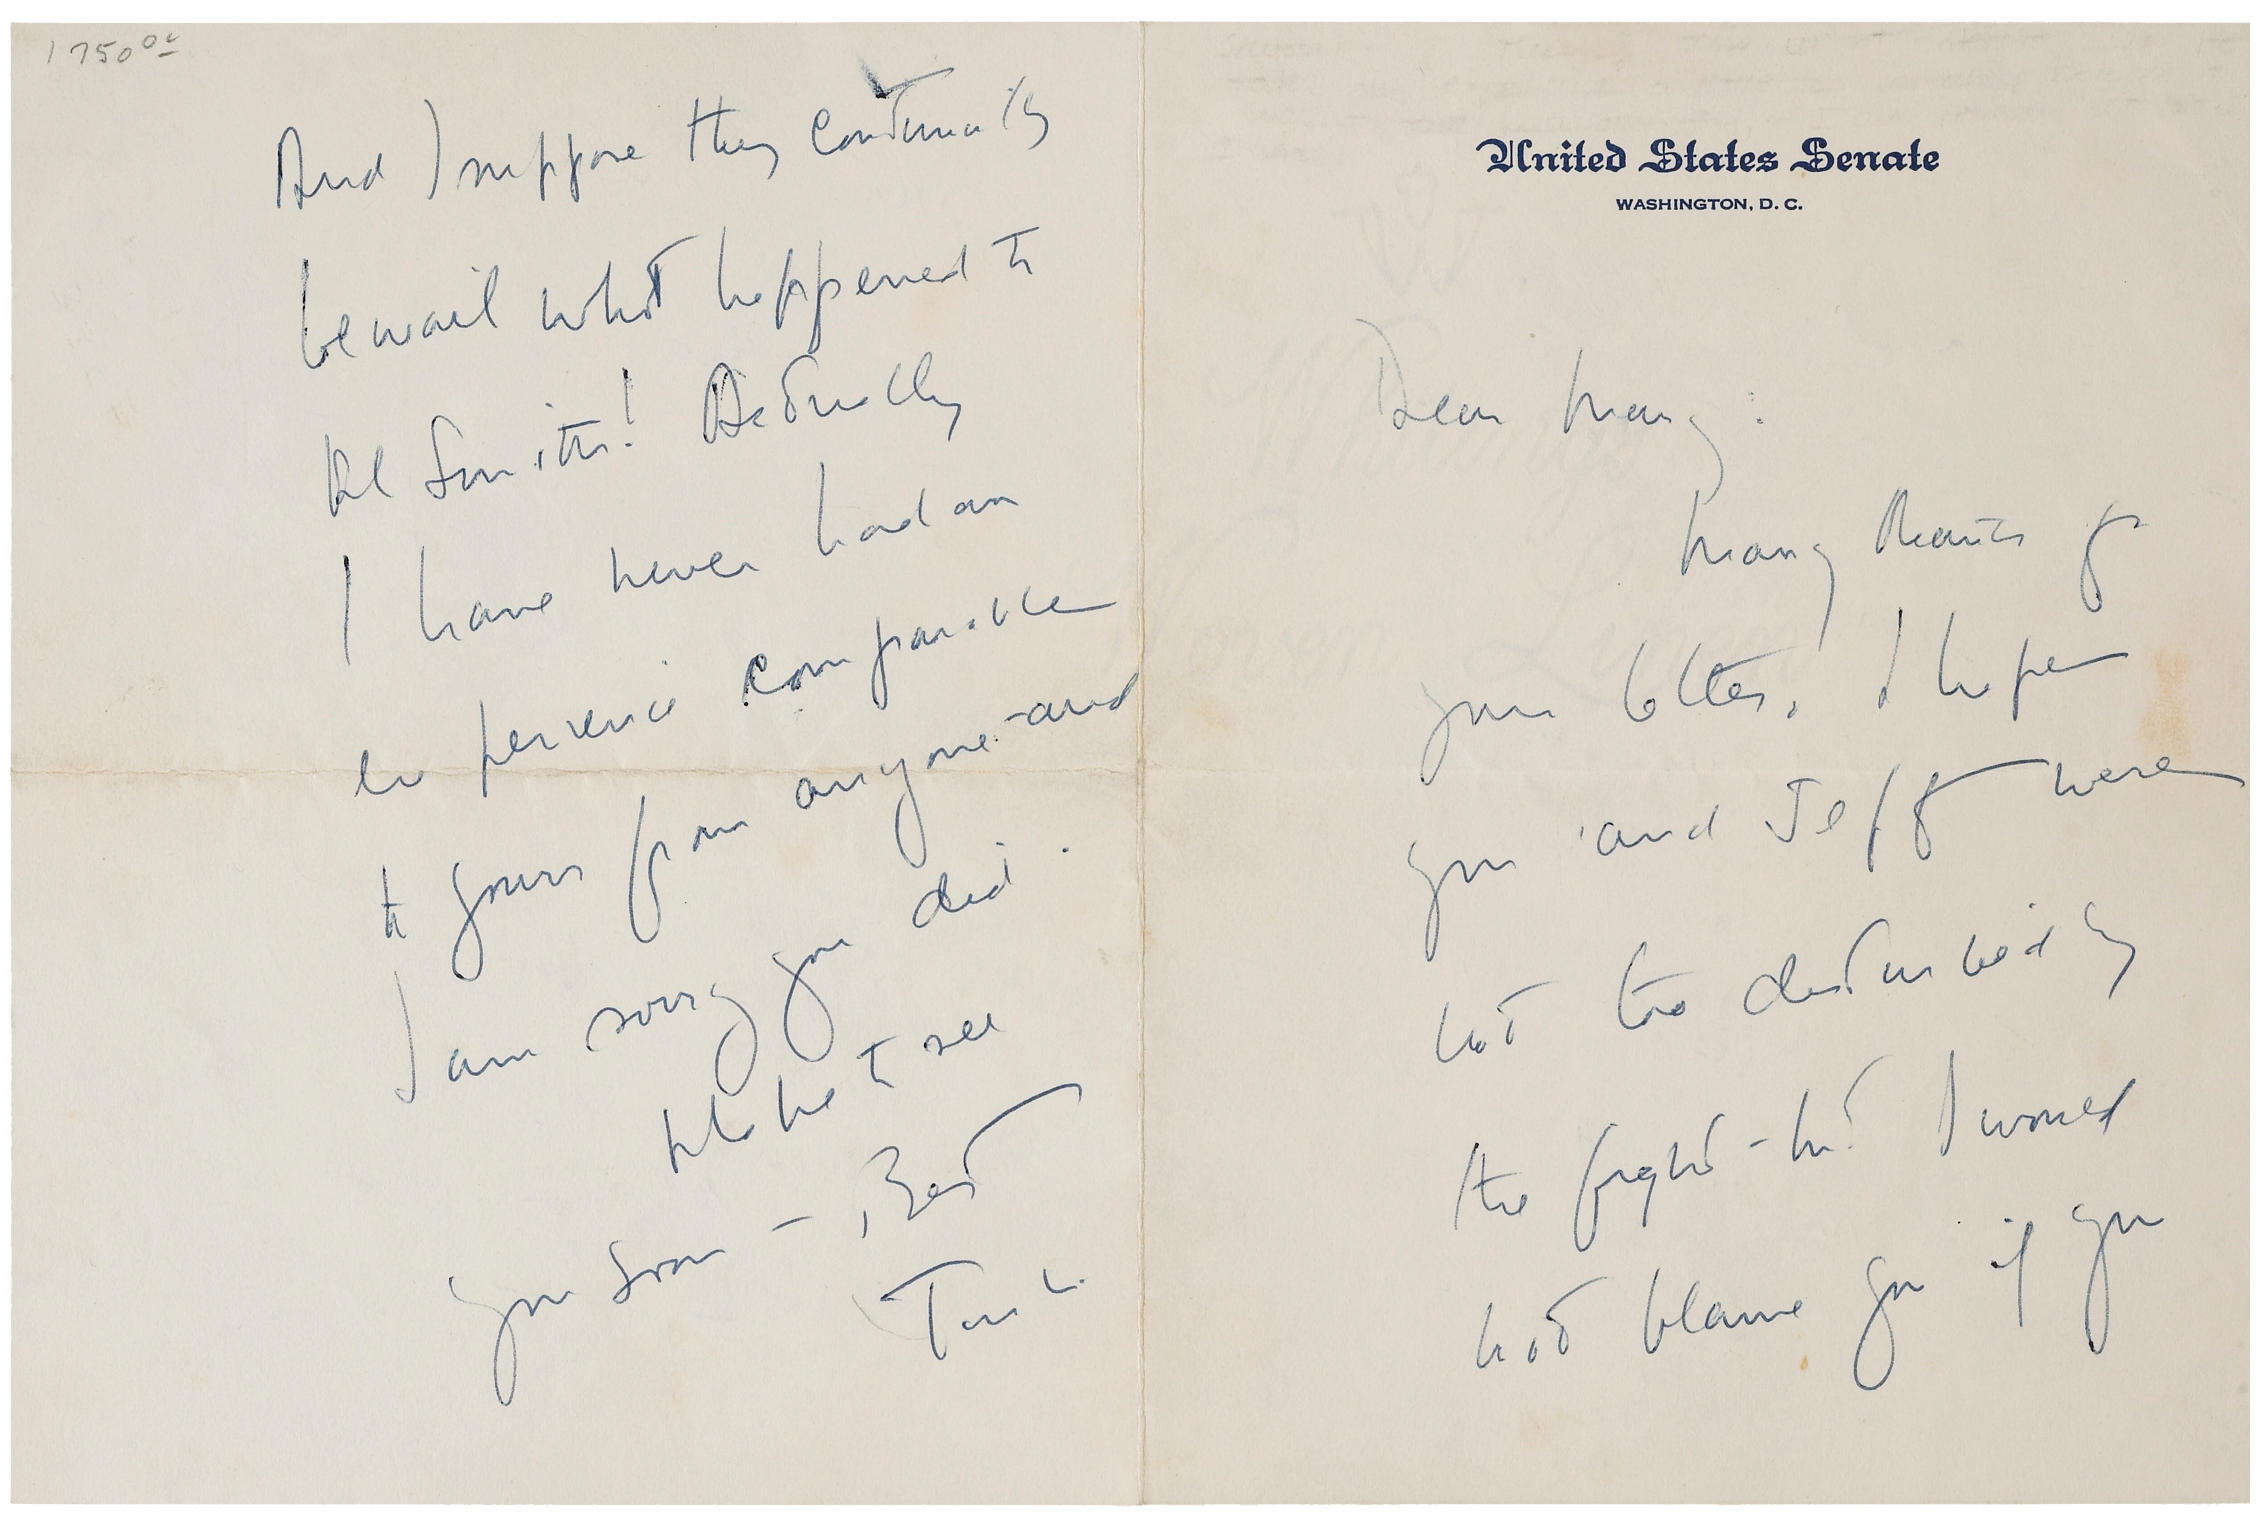 1750 00
And I suppose they continually
bewail what happened to
Al Smith! Actually
I have never had an
experience comparable
to yours from anyone - and
I am sorry you did.
Hope to see
you soon - Best
Jack
United States Senate
WASHINGTON, D. C.
Dear Mary:
Many thanks for
your letter. I hope
you and Jeff were
not too disturbed by
the fight - but I would
not blame you if you